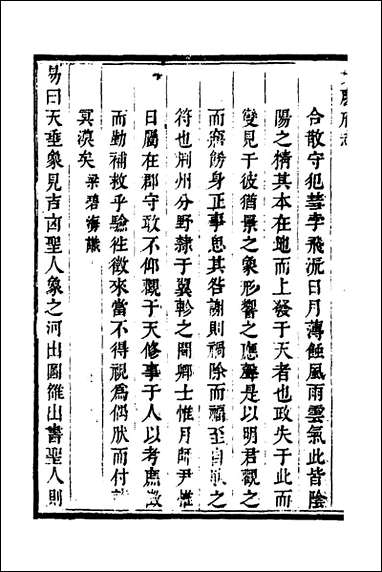 合散守犯彗孛飛流日月薄蝕風雨雲氣此皆陰
陽之精其本在地而上發于天者也政失于此而
變見于彼猶景之象形響之應聲是以明君觀之
而寤飭身正事思其咎謝則禍除而福至自然之
符也荊州分野隸于翼軫之閒卿士惟月師尹惟
日屬在郡守敢不仰觀于天修事于人以考庶徵
而勤補救乎驗往徵來當不得視爲偶然而付諸
冥漠矣 梁碧海識
易曰天垂象見吉凶聖人象之河出圖雒出書聖人則